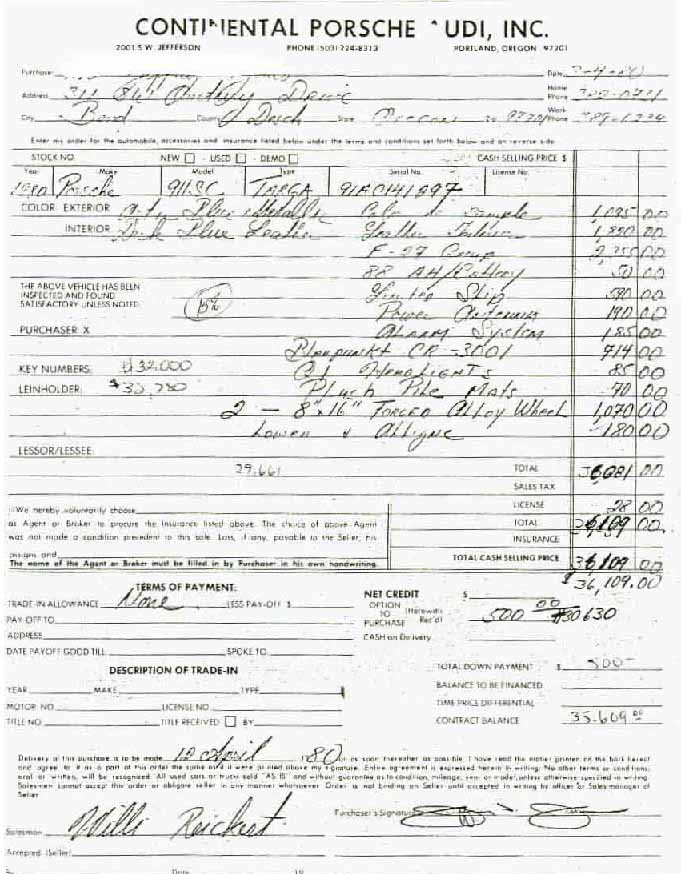 CONTINENTAL PORSCHE AUDI, INC.
2001 S.W. JEFFERSON PHONE (503) 224-8313 PORTLAND, OREGON 97201
Purchaser Date 3-4-80
Address Home Phone
City Bend County Desch State Zip Work Phone 389-1234
Enter my order for the automobile, accessories and insurance listed below under the terms and conditions set forth below and on reverse side.
STOCK NO. NEW - USED - DEMO CASH SELLING PRICE $
Year Make Model Type Serial No. License No.
1980 Porsche 911.SC TARGA 91A0141897
COLOR: EXTERIOR Blue Metallic Color to Sample 1,095 00
INTERIOR Dark Blue Leather Leather Interior 00
Group 00
88 AH/Battery 50 00
THE ABOVE VEHICLE HAS BEEN Limited Slip 00
INSPECTED AND FOUND
SATISFACTORY UNLESS NOTED. 15% Power Antenna 190 00
PURCHASER X Alarm System 185 00
Blaupunkt CR-3001 714 00
KEY NUMBERS: $32,000 HeadLights 85 00
LEINHOLDER: Plush Pile Mats 70 00
2 - 8"x16" Forged Alloy Wheel 1,070 00
Lower & Alligne 180 00
LESSOR/LESSEE:
29,661 TOTAL 36,081 00
SALES TAX
We hereby voluntarily choose LICENSE 28 00
as Agent or Broker to procure the Insurance listed above. The choice of above Agent TOTAL 36,109 00
was not made a condition precedent to this sale. Loss, if any, payable to the Seller, his INSURANCE
assigns and
The name of the Agent or Broker must be filled in by Purchaser in his own handwriting. TOTAL CASH SELLING PRICE 36,109 00
$36,109.00
TERMS OF PAYMENT: NET CREDIT $
TRADE-IN ALLOWANCE None LESS PAY-OFF $ OPTION TO PURCHASE (Herewith Rec'd) 500 00 $30630
PAY-OFF TO
ADDRESS CASH on Delivery
DATE PAYOFF GOOD TILL SPOKE TO
DESCRIPTION OF TRADE-IN TOTAL DOWN PAYMENT $ 500-
YEAR MAKE TYPE BALANCE TO BE FINANCED
MOTOR NO. LICENSE NO. TIME PRICE DIFFERENTIAL
TITLE NO. TITLE RECEIVED BY CONTRACT BALANCE 35,609.00
Delivery of this purchase is to be made 12 April 1980 or as soon thereafter as possible. I have read the matter printed on the back hereof
and agree to it as a part of this order the same as if it were printed above my signature. Entire agreement is expressed herein in writing. No other terms or conditions,
oral or written, will be recognized. All used cars or trucks sold "AS IS" and without guarantee as to condition, mileage, year or model, unless otherwise specified in writing.
Salesman cannot accept this order or obligate seller in any manner whatsoever. Order is not binding on Seller until accepted in writing by officer or Sales manager of
Seller
Salesman Willi Reichert Purchaser's Signature
Accepted (Seller)
By Date 19